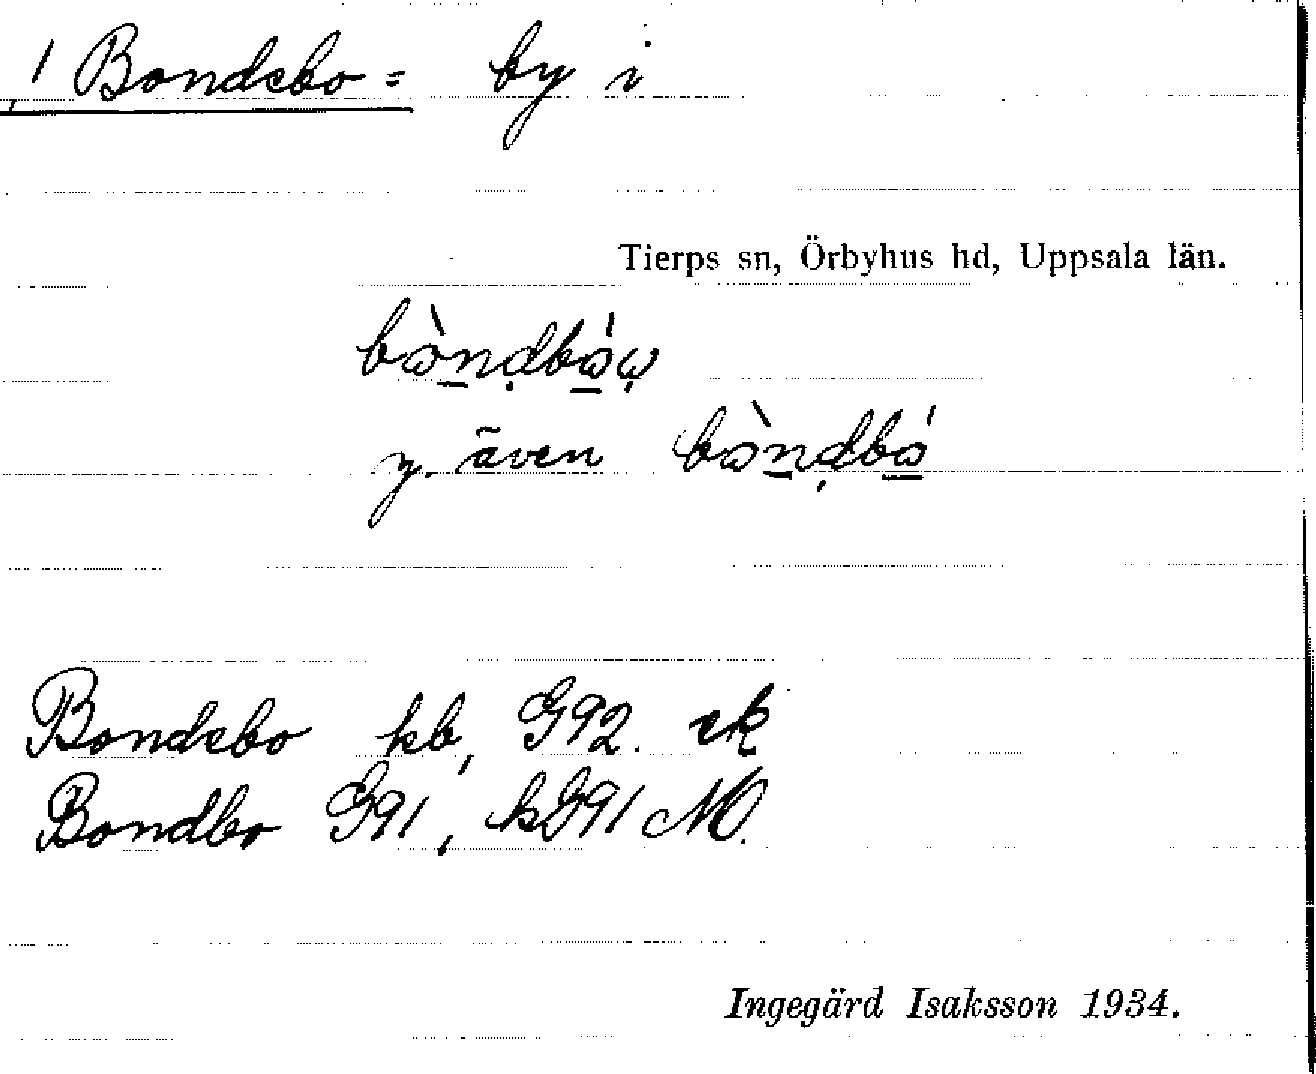 ! Bondsbo = by i
Tierps sn, Örbyhus hd, Uppsala län.
y. även
Bondebo kb, G92. ek
Bondbo G91, kG91 MO.
Ingegärd Isaksson 1934.